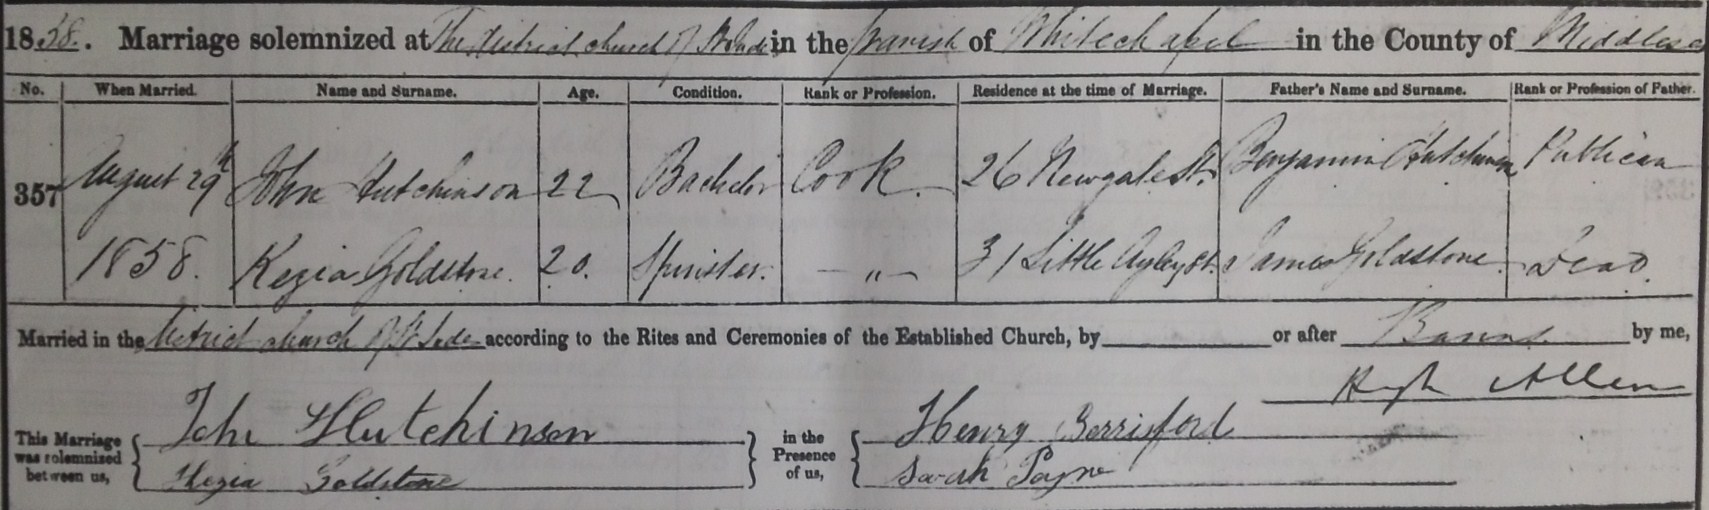 1858. Marriage solemnized at The District church of St Jude in the parish of Whitechapel in the County of Middlesex
No. When Married. Name and Surname. Age. Condition. Rank or Profession. Residence at the time of Marriage. Father's Name and Surname. Rank or Profession of Father.
357 August 29th John Hutchinson 22 Bachelor Cook. 26 Newgate St. Benjamin Hutchinson Publican
1858. Kezia Goldstone. 20. Spinster. — " — 31 Little St. James Goldstone. Dead.
Married in the District church of St Jude according to the Rites and Ceremonies of the Established Church, by or after Banns by me,
Hugh Allen
This Marriage was solemnized between us, John Hutchinson in the Presence of us, Henry Berrisford
Kezia Goldstone Sarah Payne